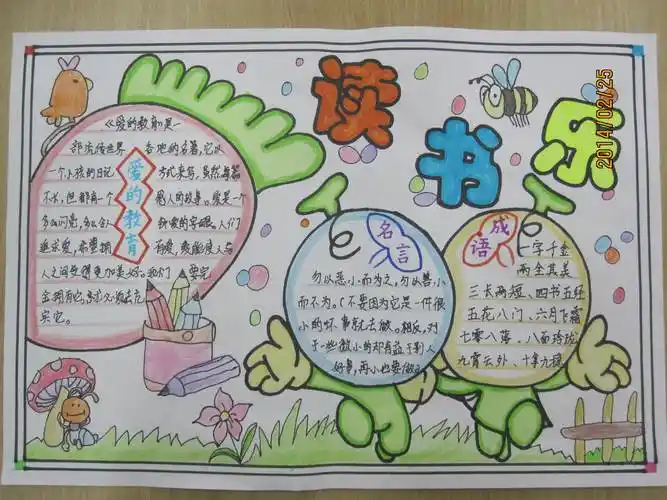 读书乐
2014/02/25
《爱的教育》是一
部流传世界各地的名著,它以
一个小孩的日记方式来写,虽然每篇
不长,但都有一个感人的故事。爱是一个
多么闪亮,多么令人
人们
追求爱,希望拥有爱,爱能使人与
人之间
更加美好。我们要完
宝。
爱的教育
名言
勿以恶小而为之,勿以善小
而不为。(不要因为它是一件很
小的坏事就去做。相反,对
于一些微小的却有益于别人
好事,再小也要做。)
成语
一字千金
两全其美
三长两短、四书五经
五花八门、六月飞霜
七零八落、八面玲珑
九霄云外、十拿九稳